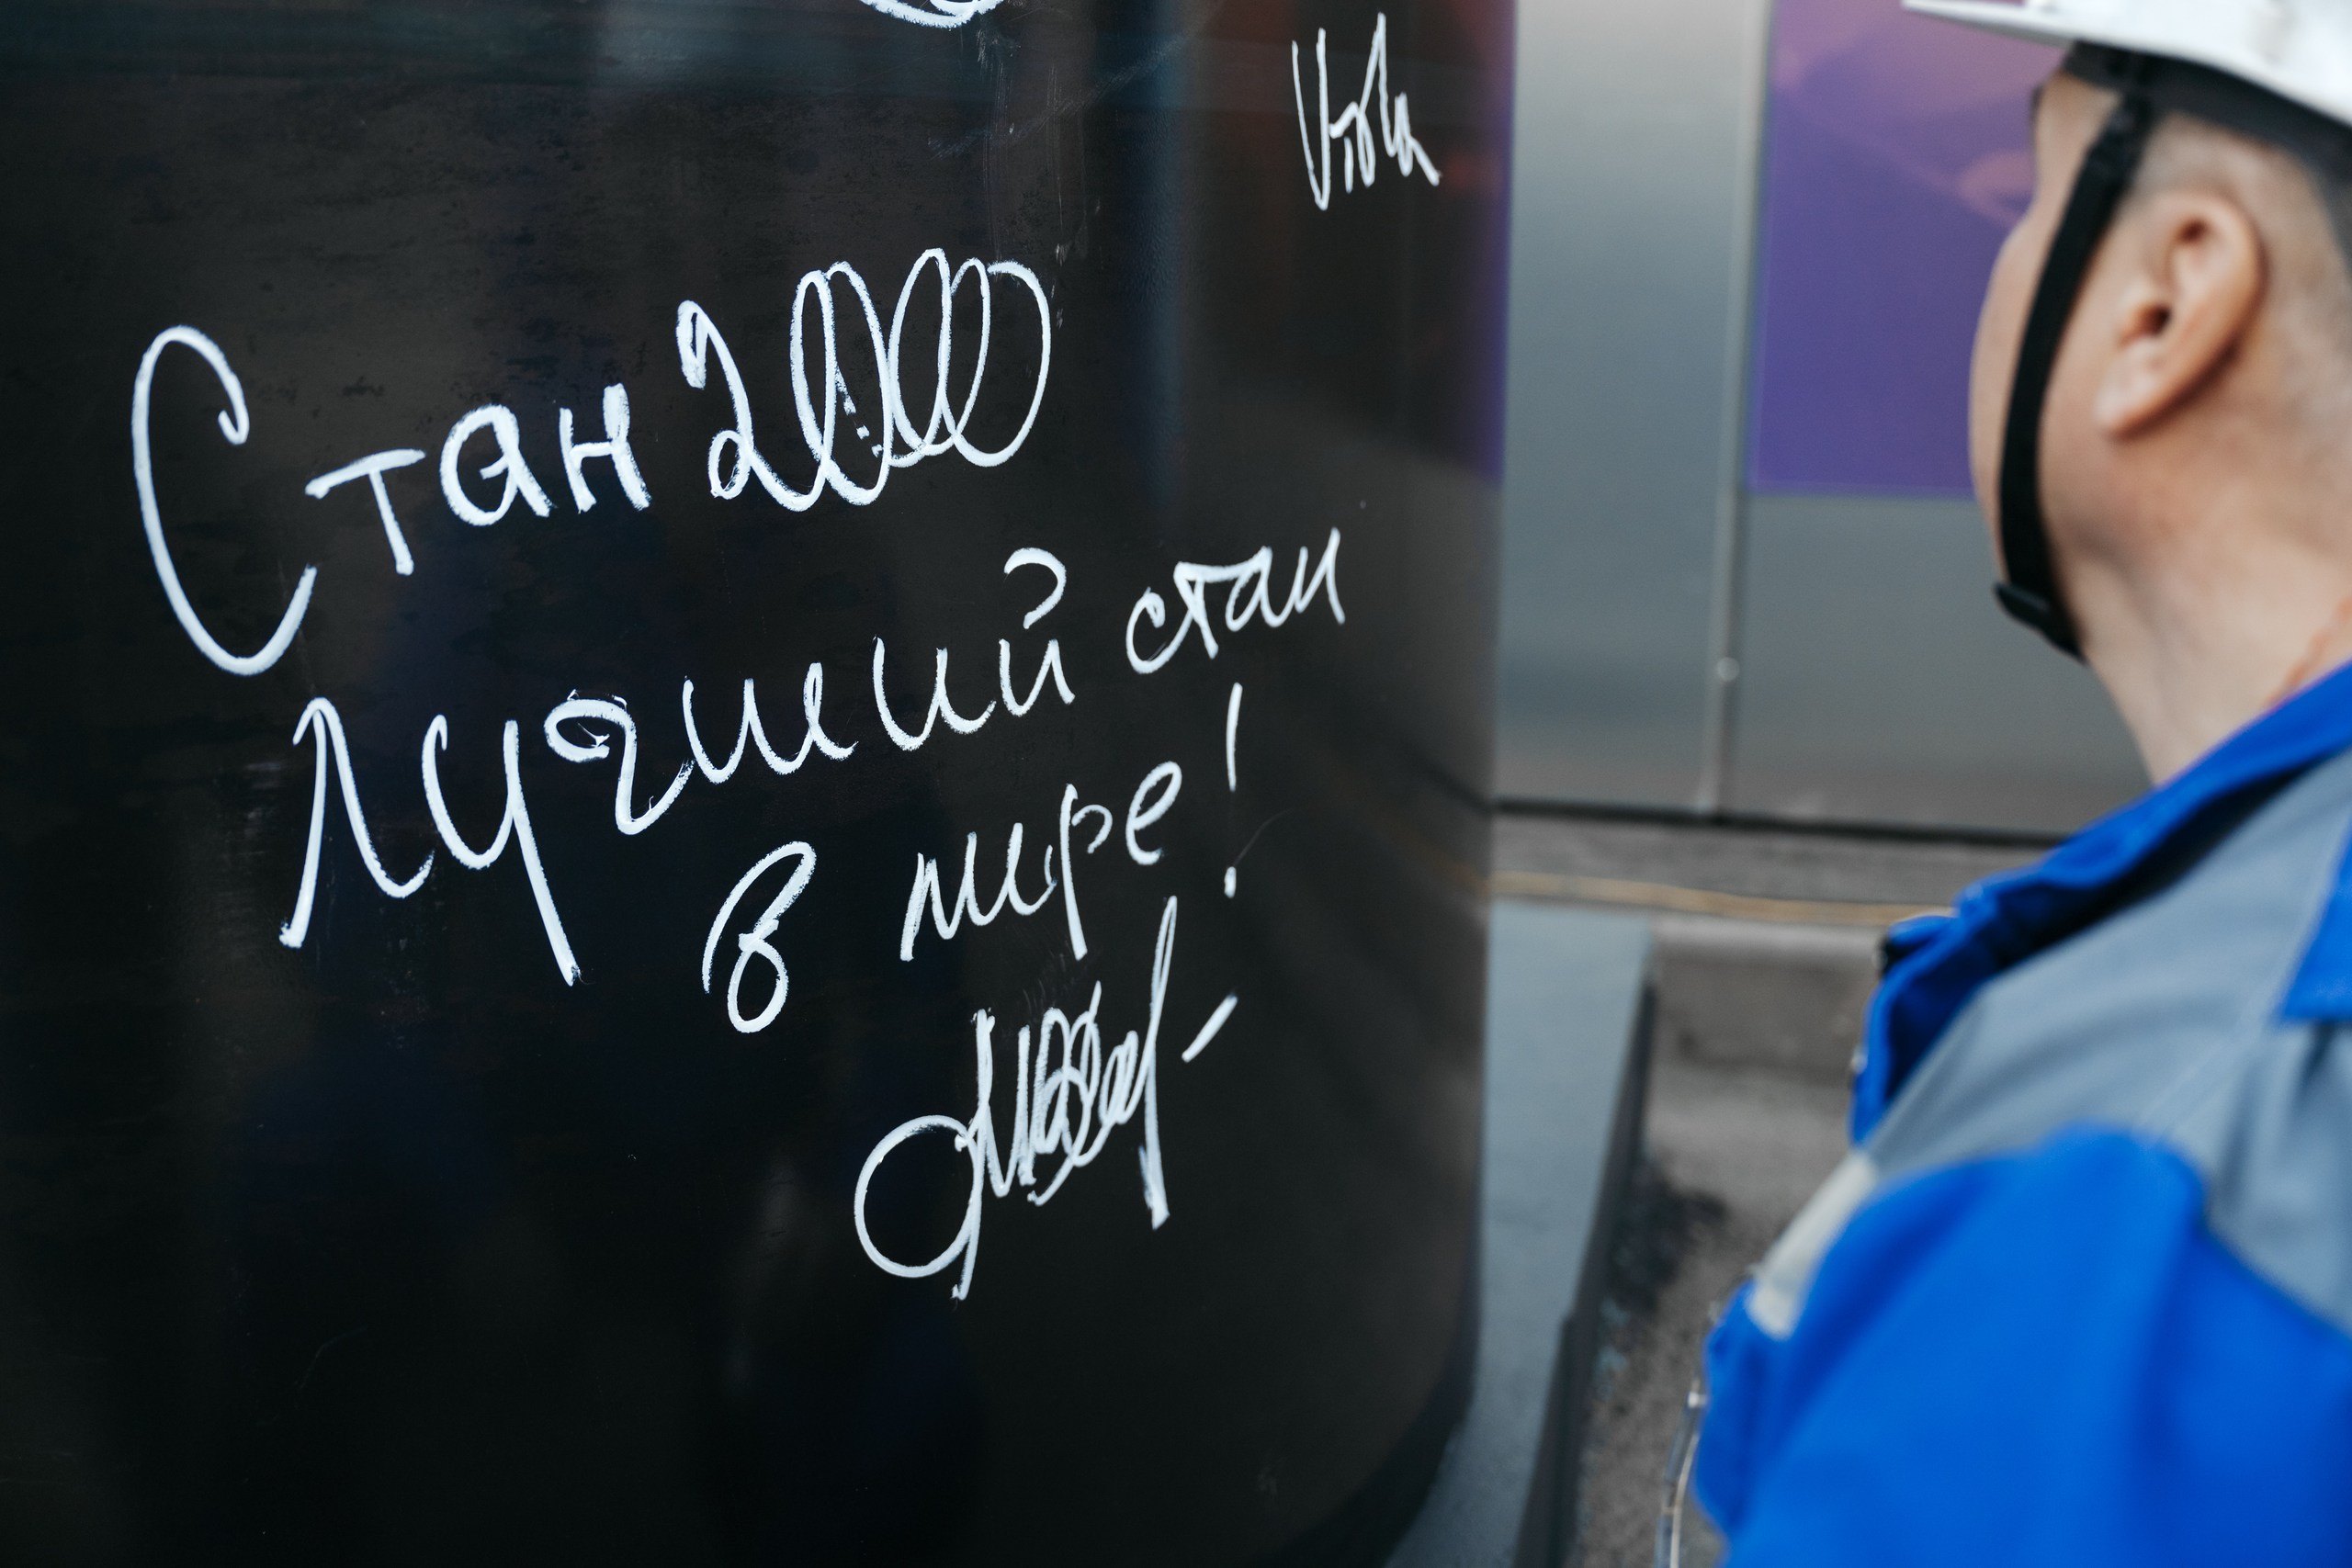 Стан 2000
Лучший стан
в мире!